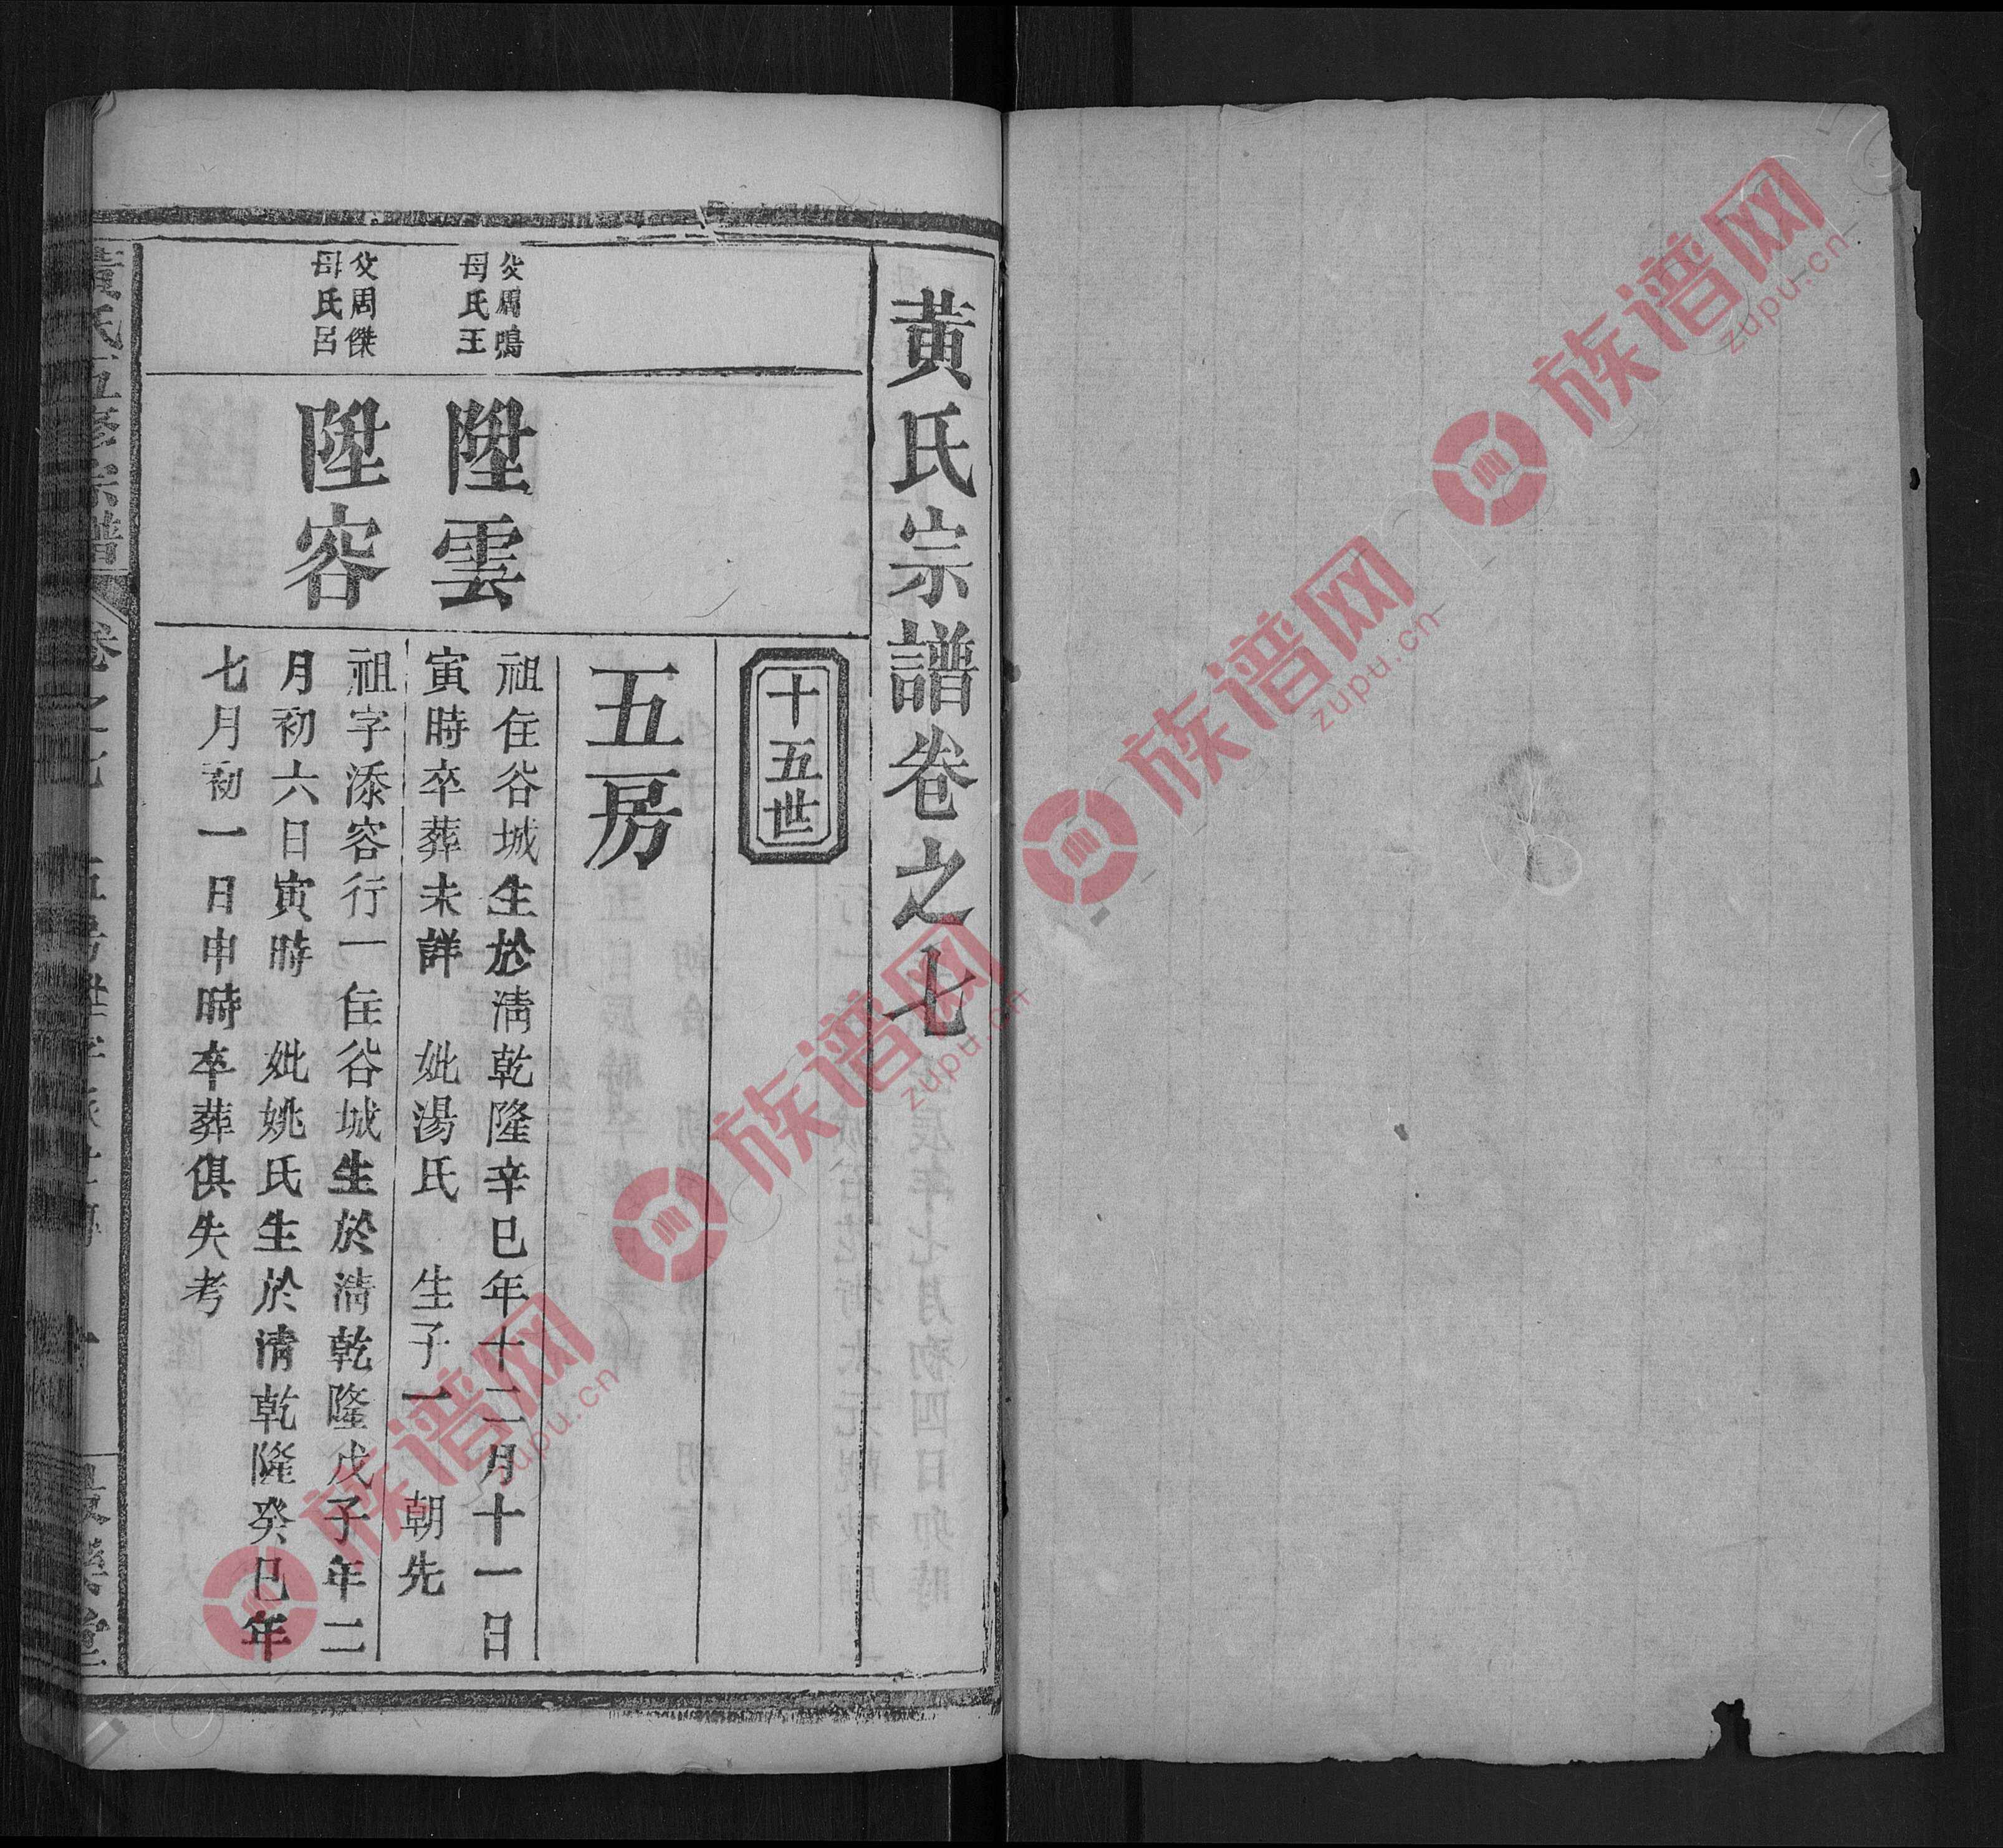 黃氏宗譜卷之七
十五世
五房
父周鳴
母氏王
陞雲
祖住谷城生於淸乾隆辛巳年十二月十一日
寅時卒葬未詳 妣湯氏 生子一 朝先
父周傑
母氏呂
陞容
祖字添容行一住谷城生於淸乾隆戊子年二
月初六日寅時 妣姚氏生於淸乾隆癸巳年
七月初一日申時卒葬俱失考
黃氏五修宗譜
卷之七
族谱网
zupu.cn
族谱网
zupu.cn
族谱网
zupu.cn
族谱网
zupu.cn